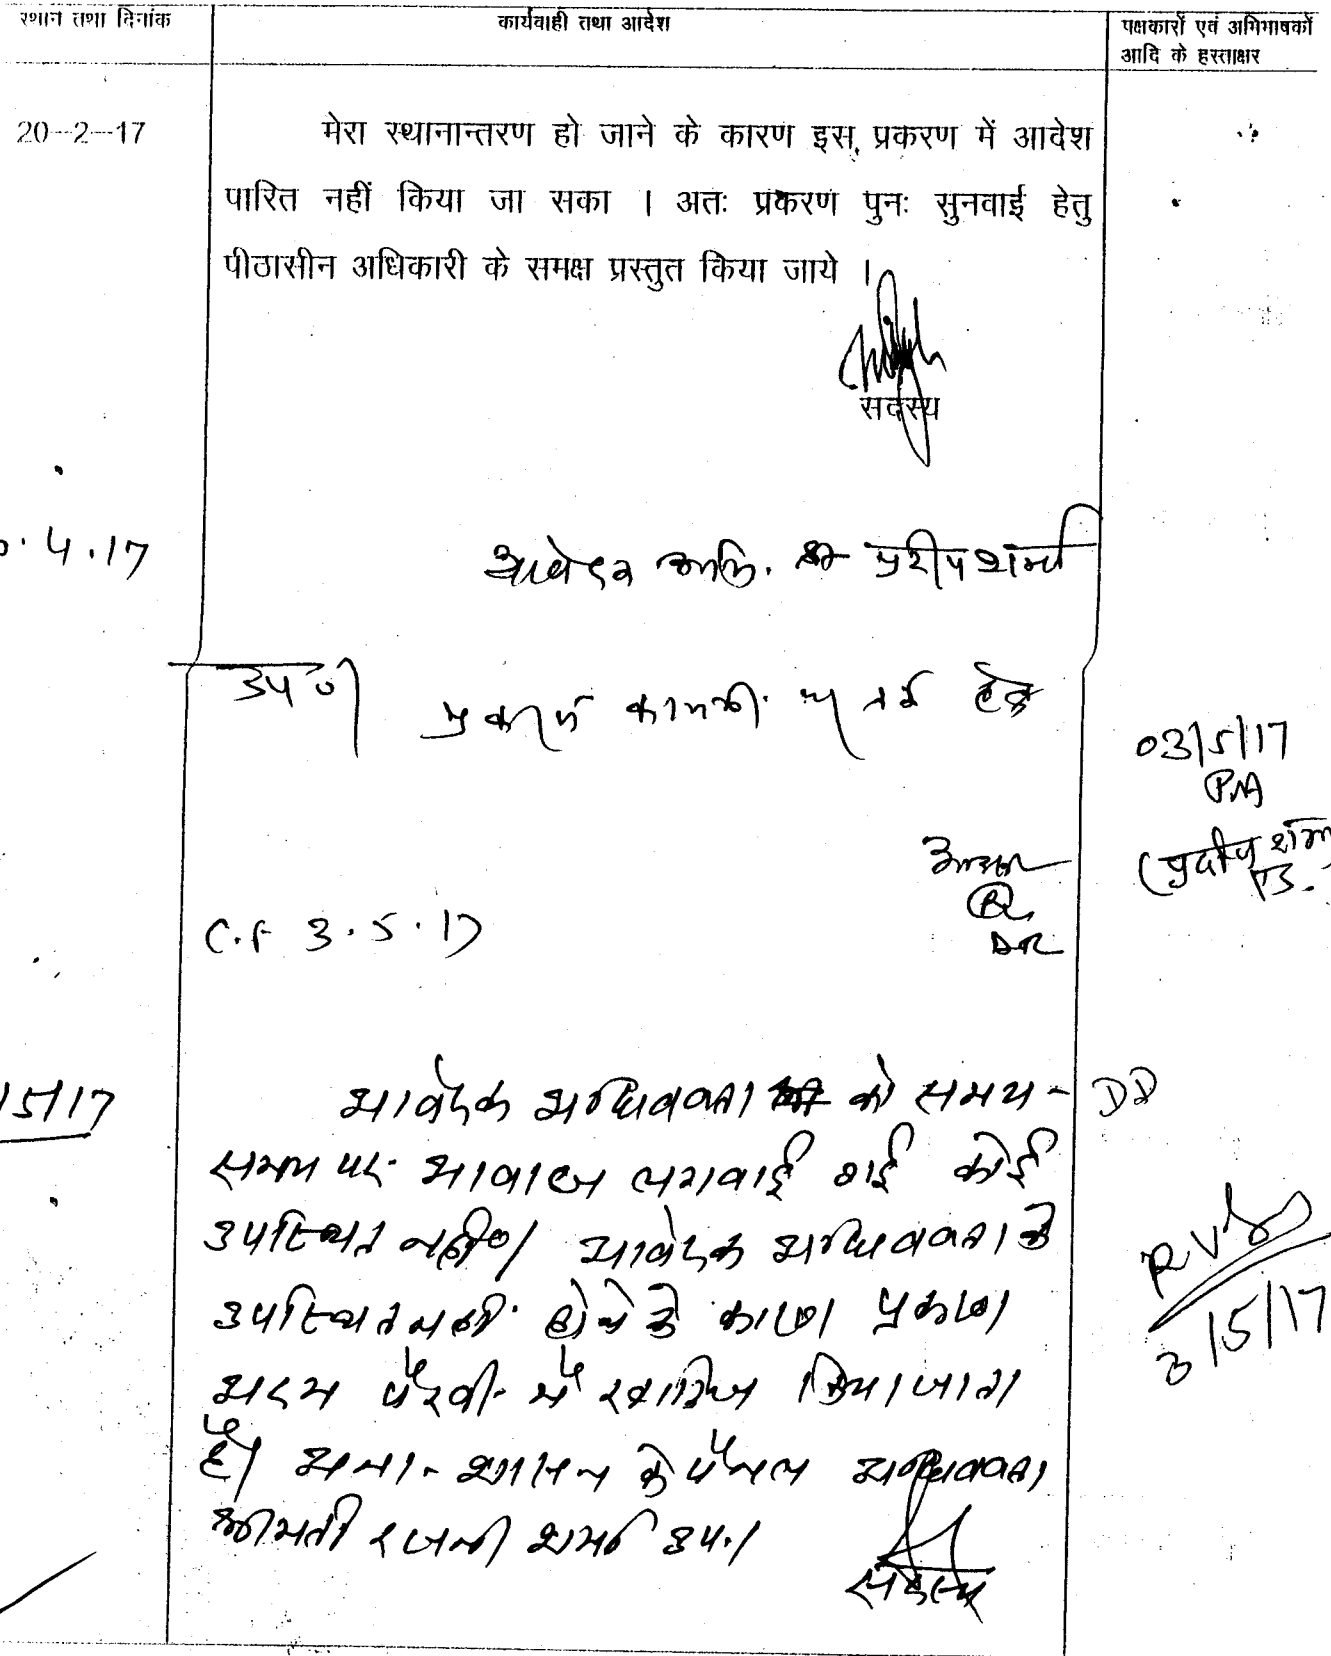 स्थान तथा दिनांक
कार्यवाही तथा आदेश
पक्षकारों एवं अभिभाषकों
आदि के हस्ताक्षर
20-2-17
मेरा स्थानान्तरण हो जाने के कारण इस प्रकरण में आदेश
पारित नहीं किया जा सका । अतः प्रकरण पुनः सुनवाई हेतु
पीठासीन अधिकारी के समक्ष प्रस्तुत किया जाये ।
सदस्य
.4.17
आवेदक अभि. श्री प्रदीप शर्मा
उप०।
प्रकरण हेतु
03/5/17
(प्रदीप शर्मा
C.F 3.5.17
DR
/5/17
आवेदक अधिवक्ता को समय-
समय पर आवाज लगवाई गई कोई
उपस्थित नहीं०। आवेदक अधिवक्ता के
उपस्थित नहीं होने के कारण प्रकरण
अदम पैरवी में खारिज किया जाता
है। अना- शासन के पैनल अधिवक्ता
श्रीमती रजनी शर्मा उप.।
सदस्य
3/5/17